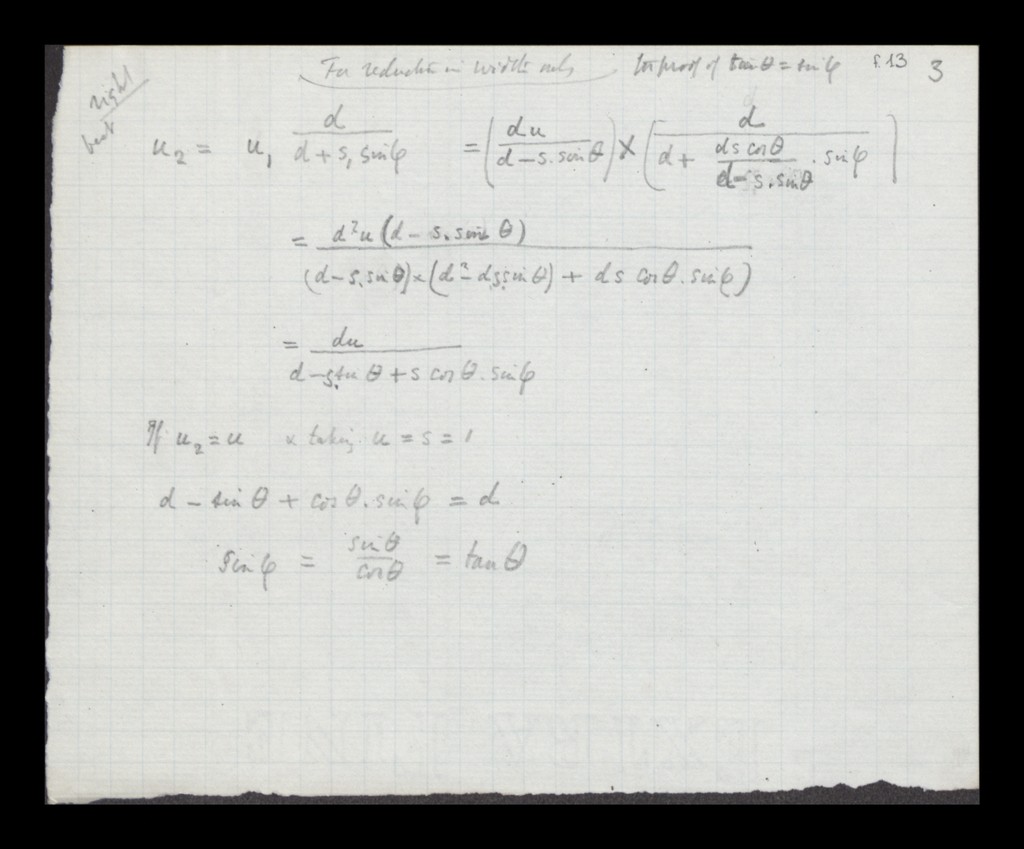 For reduction in width only for proof of tan θ = sin φ f.13 3
right
u₂ = u₁ d / (d + s₁ sin φ) = (du / (d − s.sin θ)) × (d / (d + (ds cos θ / (d − s.sin θ)) . sin φ))
= d²u (d − s.sin θ) / ((d − s.sin θ) × (d² − ds sin θ) + ds cos θ . sin φ)
= du / (d − s sin θ + s cos θ . sin φ)
If u₂ = u & taking u = s = 1
d − sin θ + cos θ . sin φ = d
sin φ = sin θ / cos θ = tan θ